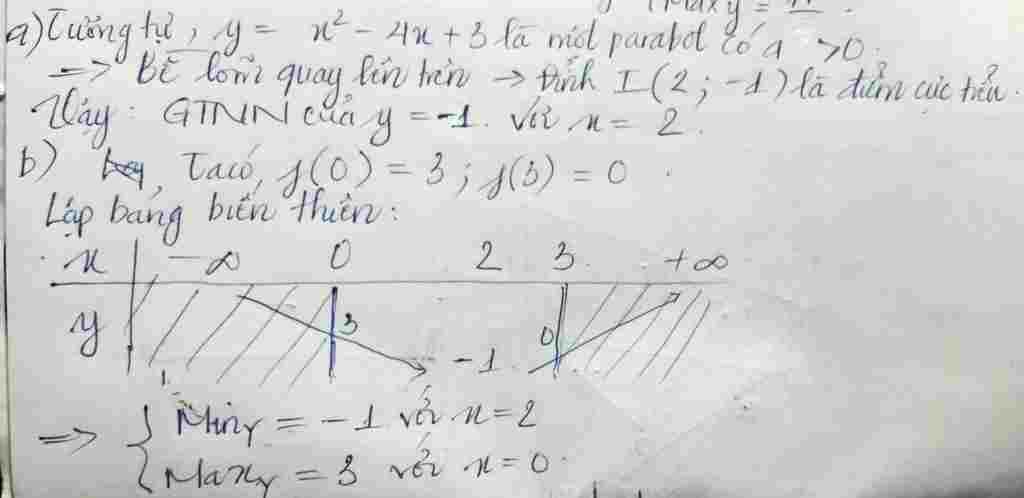 Max y =
a) Tương tự, y = x² - 4x + 3 là một parabol có a > 0.
=> Bề lõm quay lên trên → đỉnh I(2; -1) là điểm cực tiểu.
Vậy: GTNN của y = -1. với x = 2.
b) Ta có, f(0) = 3; f(3) = 0.
Lập bảng biến thiên:
x -∞ 0 2 3 +∞
y 3 -1 0
=> { Min y = -1 với x = 2
Max y = 3 với x = 0.